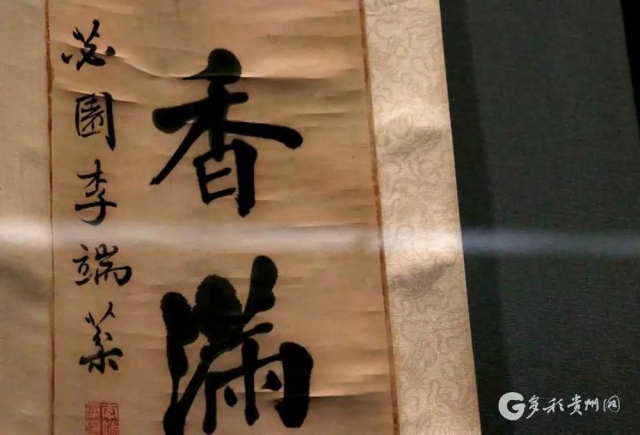 香满
苾園李端棻
多彩贵州网